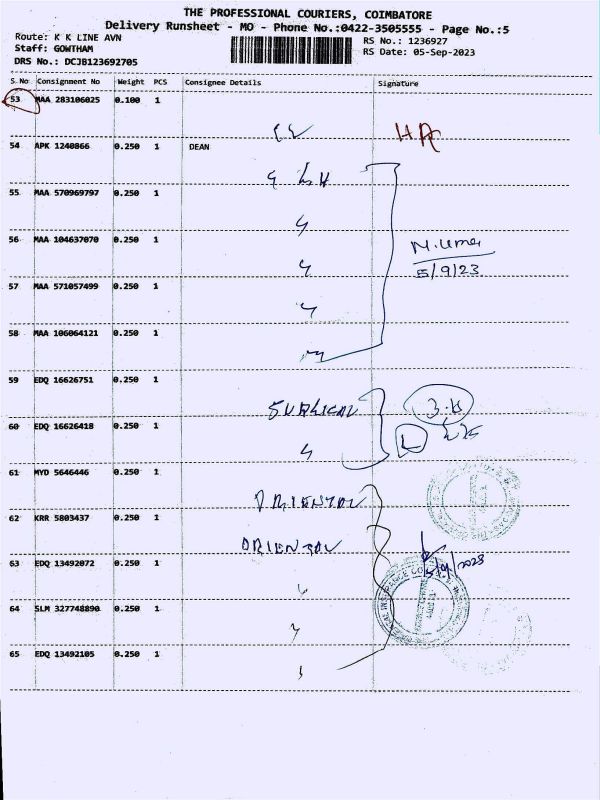 THE PROFESSIONAL COURIERS, COIMBATORE
Delivery Runsheet - MO - Phone No.:0422-3505555 - Page No.:5
Route: K K LINE AVN
RS No.: 1236927
Staff: GOWTHAM
RS Date: 05-Sep-2023
DRS No.: DCJB123692705
S.No Consignment No Weight PCS Consignee Details Signature
53 MAA 283106025 0.100 1
54 APK 1240866 0.250 1 DEAN
55 MAA 570969797 0.250 1
56 MAA 104637070 0.250 1
5/9/23
57 MAA 571057499 0.250 1
58 MAA 106064121 0.250 1
59 EDQ 16626751 0.250 1
SURGICAL
60 EDQ 16626418 0.250 1
61 MYD 5646446 0.250 1
ORIENTAL
62 KRR 5803437 0.250 1
ORIENTAL
63 EDQ 13492072 0.250 1
64 SLM 327748890 0.250 1
65 EDQ 13492105 0.250 1